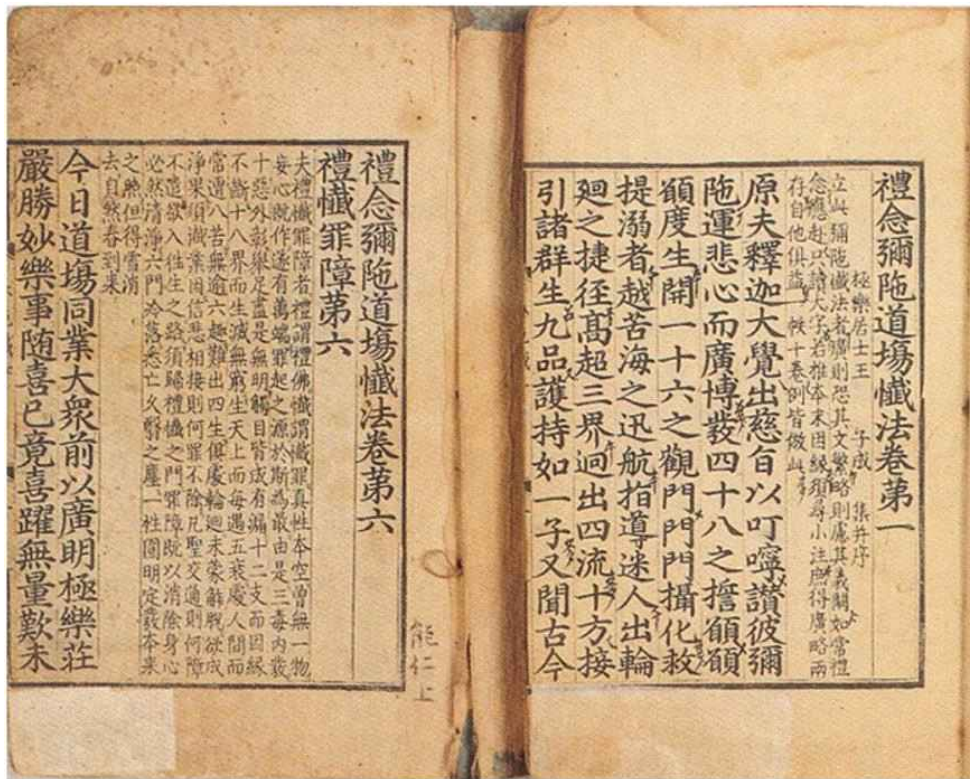 禮念彌陁道塲懺法卷第一
極樂居士王 子成 集并序
立此彌陁懺法者廣則恐其文繁略則慮其義闕如常禮
念應赴只讀大字若推本末因緣須尋小注庶得廣略兩
存自他俱益一候十卷例皆倣此
原夫釋迦大覺出慈旨以叮嚀讃彼彌
陁運悲心而廣博發四十八之擔願願
願度生開一十六之觀門門門攝化救
提溺者越苦海之迅航指導迷人出輪
廻之捷徑髙超三界迥出四流十方接
引諸群生九品護持如一子又聞古今
能仁上
禮念彌陁道塲懺法卷第六
禮懺罪障第六
夫禮懺罪障者禮謂禮佛懺謂懺罪真性本空曾無一物
妄心旣作遂有萬端罪起之源於斯為最由是三毒内發
十惡外彰舉足盡是無明觸目皆成有漏十二支而因緣
不斷十八界而生滅無窮生天上而每遇五衰處人間而
常遭八苦無逾六趣難出四生俾處輪迴未蒙解脫欲成
淨果須懺業因信悲相接則何罪不除凡聖交通則何障
不遣欲入徃生之路須歸禮懺之門罪障旣以消除身心
必然清淨六門冷落悉亡久翳之塵一柱圓明定觀本来
之無但得雪消
去自然春到来
今日道塲同業大衆前以廣明極樂莊
嚴勝妙樂事随喜已竟喜躍無量歎未